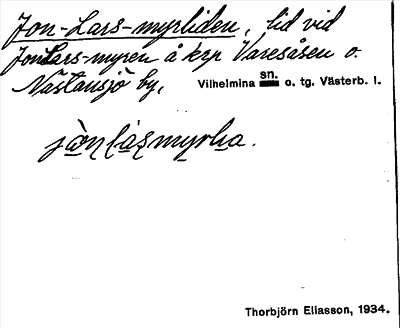 Jon-Lars-myrliden, lid vid
JonLars-myren å krp Varesåsen o.
Nästansjö by, Vilhelmina sn. o. tg. Västerb. l.
Thorbjörn Eliasson, 1934.